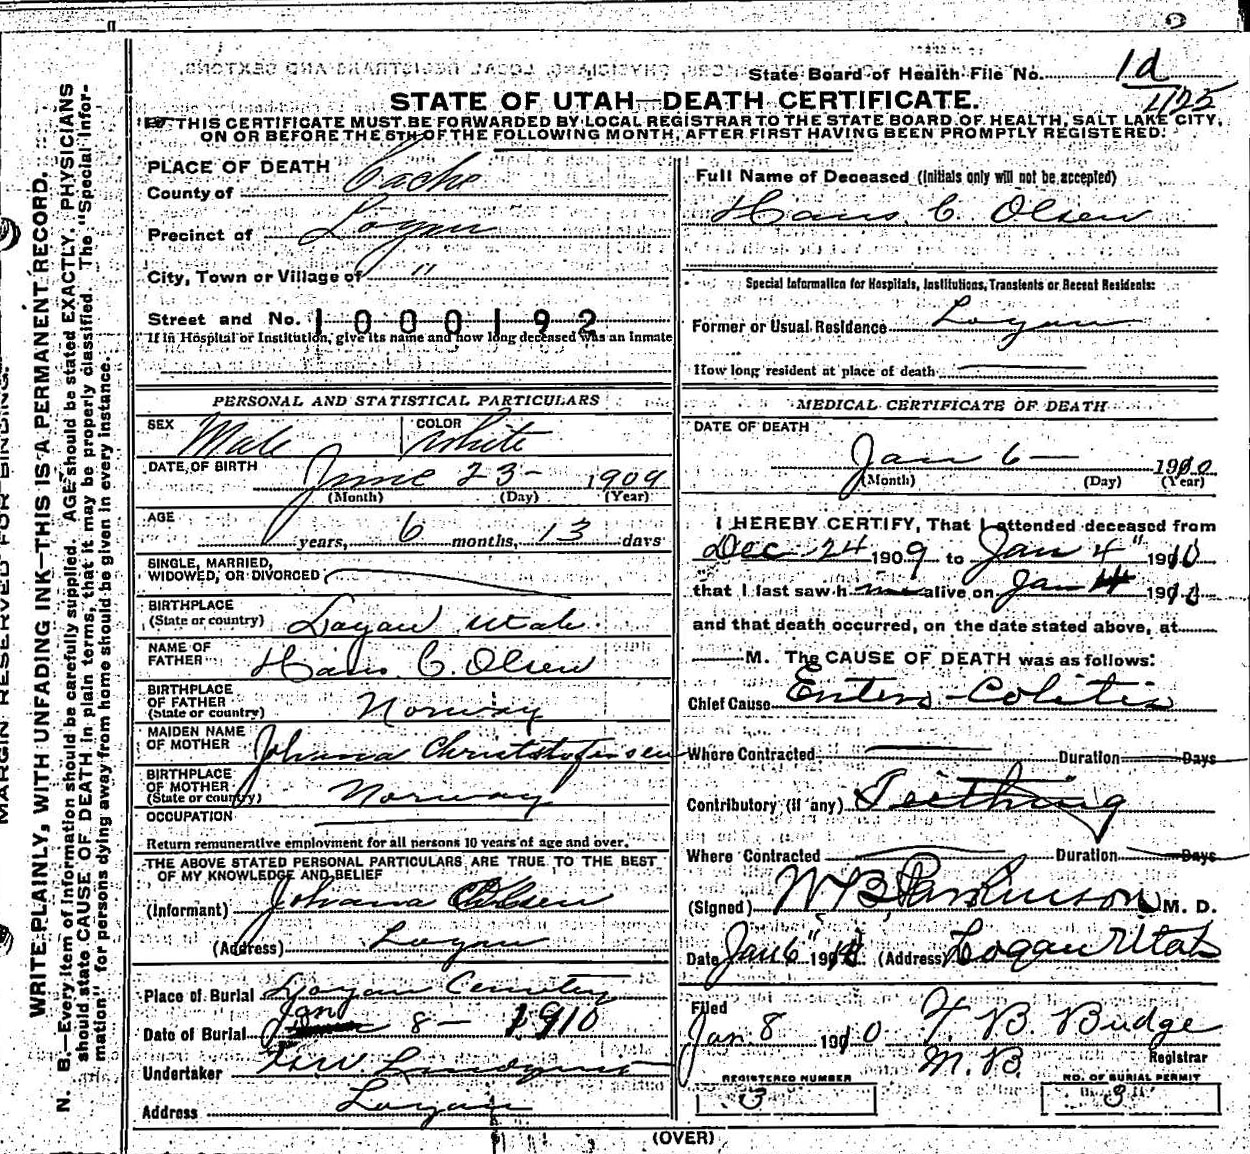 State Board of Health File No. 1d
425
STATE OF UTAH—DEATH CERTIFICATE.
THIS CERTIFICATE MUST BE FORWARDED BY LOCAL REGISTRAR TO THE STATE BOARD OF HEALTH, SALT LAKE CITY,
ON OR BEFORE THE 5TH OF THE FOLLOWING MONTH, AFTER FIRST HAVING BEEN PROMPTLY REGISTERED.
MARGIN RESERVED FOR BINDING.
WRITE PLAINLY, WITH UNFADING INK—THIS IS A PERMANENT RECORD.
N. B.—Every item of information should be carefully supplied. AGE should be stated EXACTLY. PHYSICIANS
should state CAUSE OF DEATH in plain terms, that it may be properly classified. The "Special Infor-
mation" for persons dying away from home should be given in every instance.
PLACE OF DEATH
County of Cache
Precinct of Logan
City, Town or Village of "
Street and No. 1000192
If in Hospital or Institution, give its name and how long deceased was an inmate
PERSONAL AND STATISTICAL PARTICULARS
SEX Male COLOR White
DATE OF BIRTH June 23 - 1909
(Month) (Day) (Year)
AGE years, 6 months, 13 days
SINGLE, MARRIED,
WIDOWED, OR DIVORCED
BIRTHPLACE
(State or country) Logan Utah.
NAME OF
FATHER Hans C. Olsen
BIRTHPLACE
OF FATHER
(State or country) Norway
MAIDEN NAME
OF MOTHER Johana
BIRTHPLACE
OF MOTHER
(State or country) Norway
OCCUPATION
Return remunerative employment for all persons 10 years of age and over.
THE ABOVE STATED PERSONAL PARTICULARS ARE TRUE TO THE BEST
OF MY KNOWLEDGE AND BELIEF
(Informant) Johana Olsen
(Address) Logan
Place of Burial Logan Cemetery
Date of Burial Jan 8 - 1910
Undertaker Lindquist
Address Logan
Full Name of Deceased (Initials only will not be accepted)
Hans C. Olsen
Special Information for Hospitals, Institutions, Transients or Recent Residents:
Former or Usual Residence Logan
How long resident at place of death
MEDICAL CERTIFICATE OF DEATH
DATE OF DEATH
Jan 6 — 1910
(Month) (Day) (Year)
I HEREBY CERTIFY, That I attended deceased from
Dec 24 1909 to Jan 4" 1910
that I last saw h im alive on Jan 4 1910
and that death occurred, on the date stated above, at
M. The CAUSE OF DEATH was as follows:
Chief Cause Entero-Colitis
Where Contracted Duration Days
Contributory (if any) Teething
Where Contracted Duration Days
(Signed) W B Parkinson M. D.
Date Jan 6" 1910 (Address) Logan Utah
Filed
Jan. 8 1910 T B Budge
M. B. Registrar
REGISTERED NUMBER NO. OF BURIAL PERMIT
3 3
(OVER)